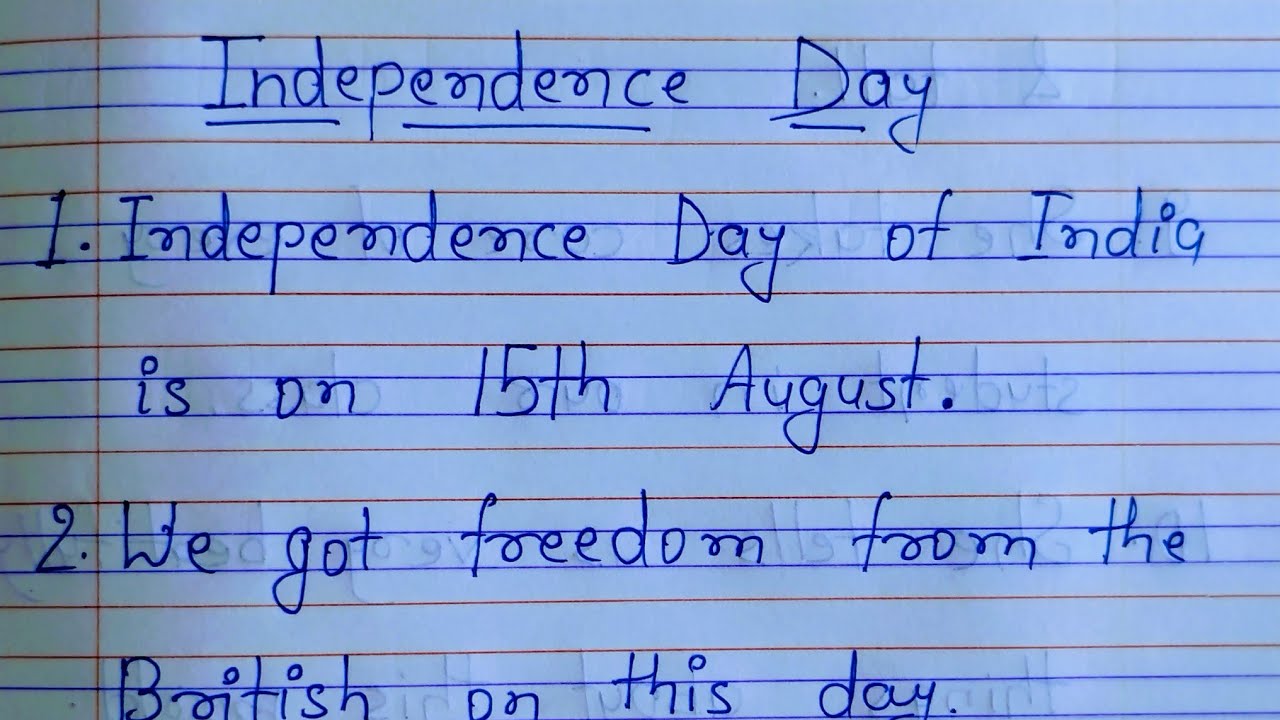 Independence Day
1. Independence Day of India
is on 15th August.
2. We got freedom from the
British on this day.